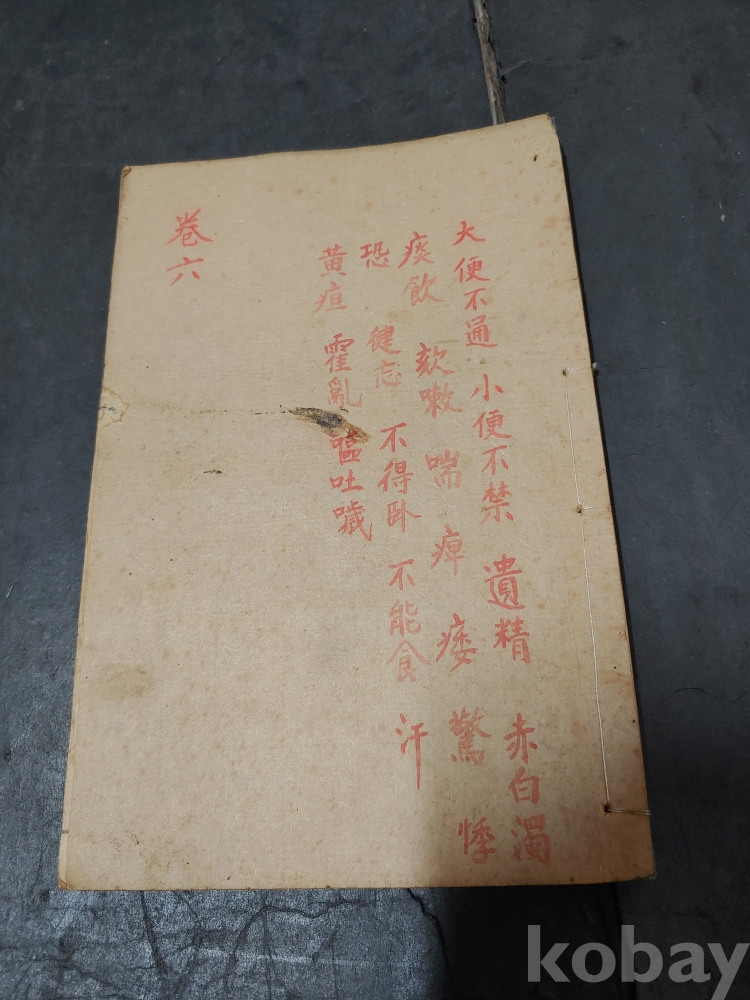 大便不通 小便不禁 遺精 赤白濁
痰飲 欬嗽 喘 痺 痿 驚 悸
恐 健忘 不得卧 不能食 汗
黃疸 霍亂 嘔吐噦
卷六
kobay